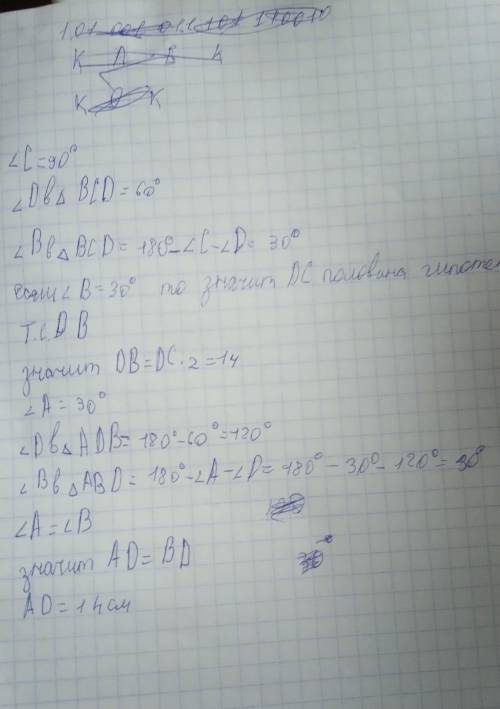 К А В А
К К
∠C = 90°
∠D в △ BCD = 60°
∠B в △ BCD = 180° - ∠C - ∠D = 30°
если ∠B = 30° то значит DC половина гипотен
т.е. DB
значит DB = DC · 2 = 14
∠A = 30°
∠D в △ ADB = 180° - 60° = 120°
∠B в △ ABD = 180° - ∠A - ∠D = 180° - 30° - 120° = 30°
∠A = ∠B
значит AD = BD
AD = 14 см